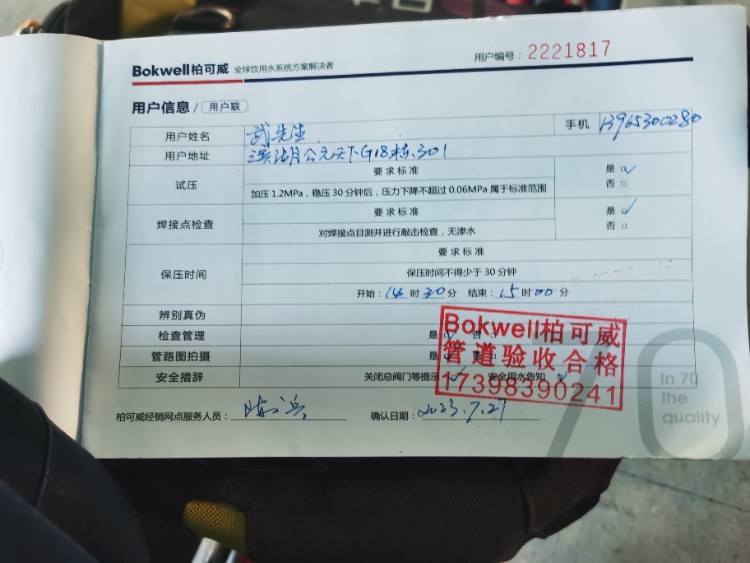 Bokwell柏可威 全球饮用水系统方案解决者 用户编号：2221817
用户信息 / 用户联
用户姓名 武先生 手机 13965300280
用户地址 滨湖公元天下G18栋.301
试压 要求标准 是 ✓
加压 1.2MPa，稳压 30 分钟后，压力下降不超过 0.06MPa 属于标准范围 否 □
焊接点检查 要求标准 是 ✓
对焊接点目测并进行敲击检查，无渗水 否 □
要求标准
保压时间 保压时间不得少于 30 分钟
开始：14 时 30 分 结束：15 时 00 分
辨别真伪
检查管理 是
管路图拍摄 是
安全措辞 关闭总阀门等提示 ✓ 安全用水告知 ✓
Bokwell柏可威
管道验收合格
17398390241
In 70
the
quality
70
柏可威经销网点服务人员： 确认日期：2023.7.27